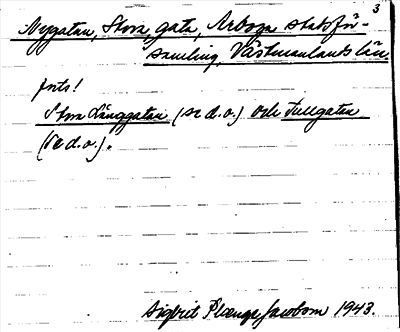 3
Nygatan, Stora gata, Arboga stadsför-
samling, Västmanlands län.
forts!
Stora Långgatan (se d.o.) och Tullgatan
(se d.o.).
Sigbrit Plænge Jacobson 1943.